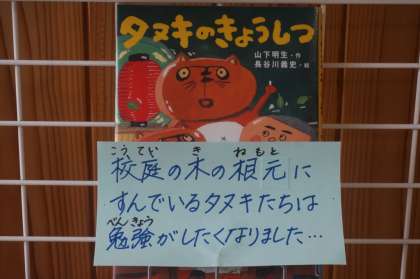 タヌキのきょうしつ
山下明生・作
長谷川義史・絵
こうてい き ねもと
校庭の木の根元に
すんでいるタヌキたちは
べんきょう
勉強がしたくなりました…